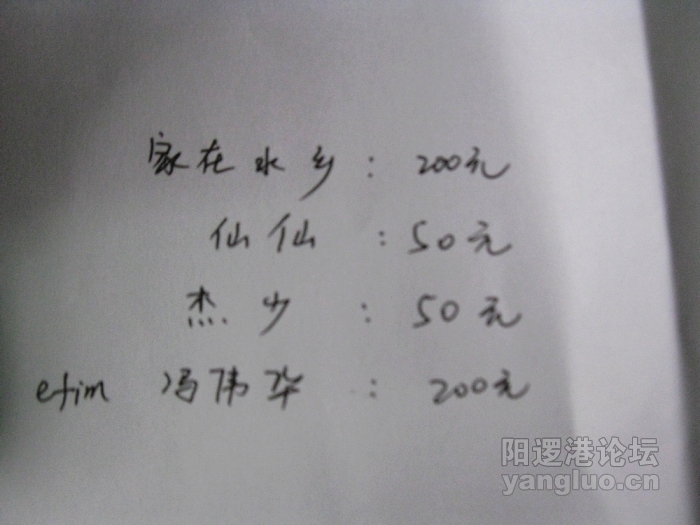 家在水乡：200元
仙仙：50元
杰少：50元
efim 冯伟华：200元
阳逻港论坛
yangluo.cn